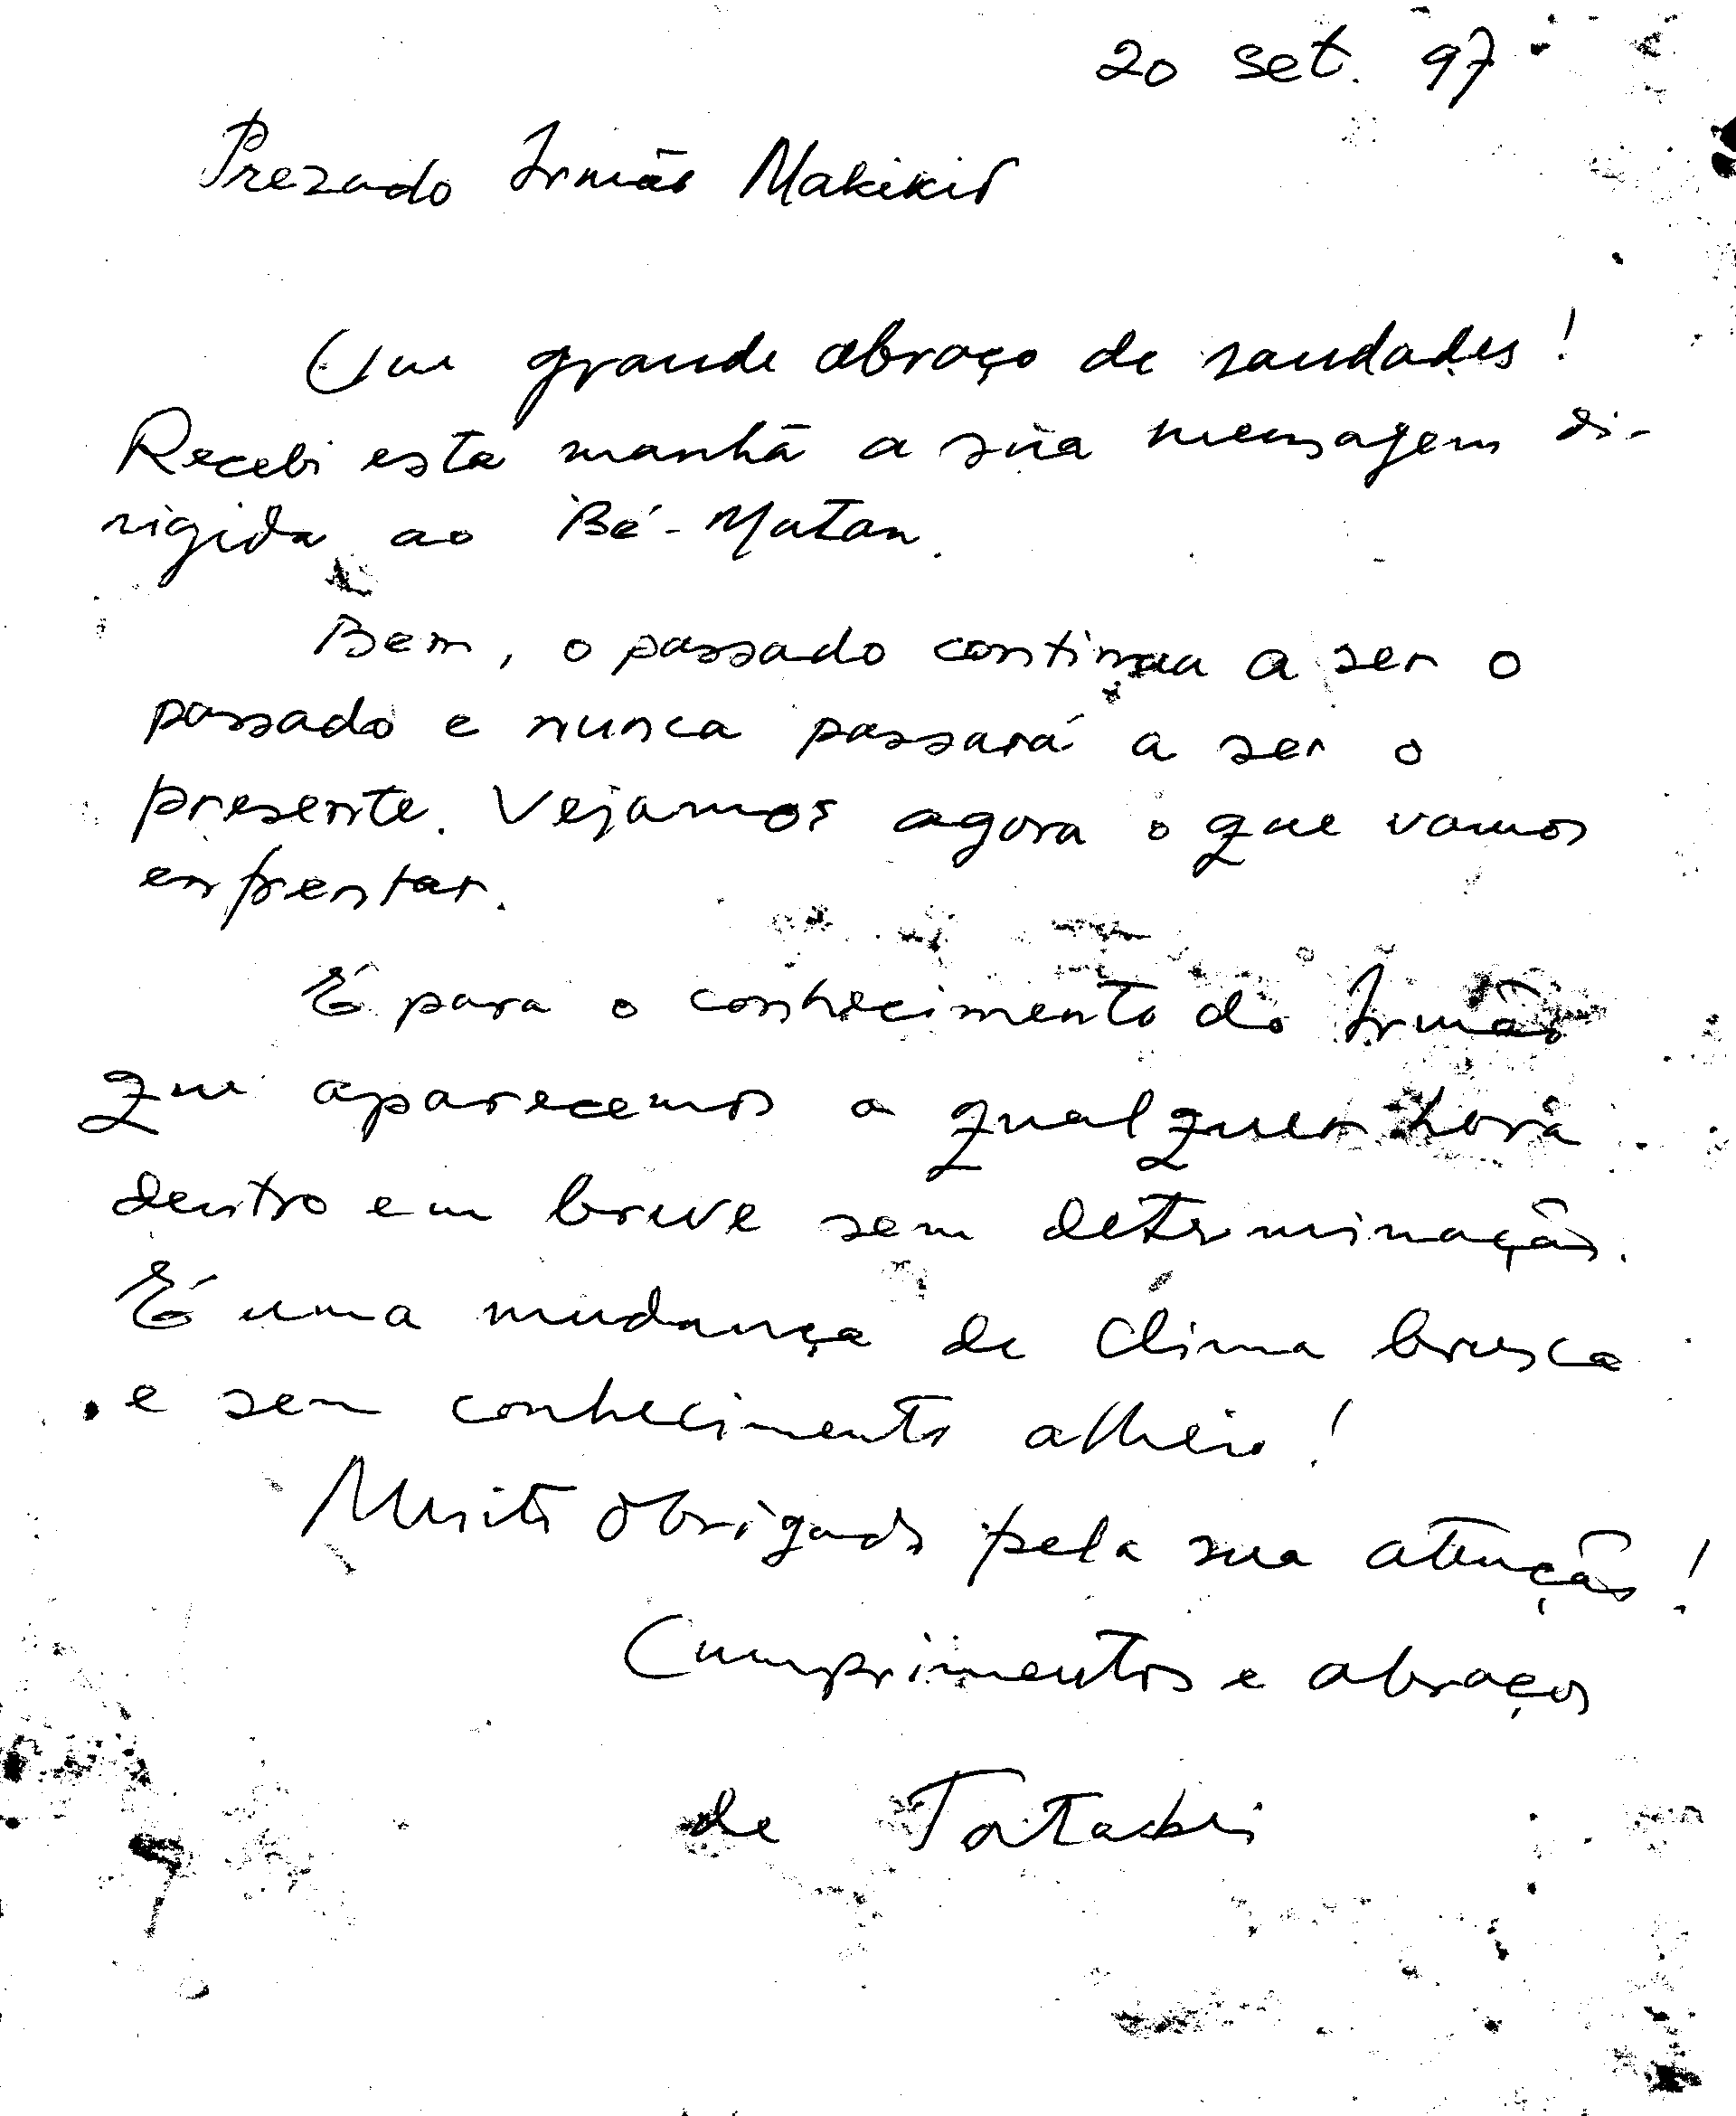 20 set. 97
Prezado Irmão Makikit
Um grande abraço de saudades!
Recebi esta manhã a sua mensagem di-
rigida ao Bé-Matan.
Bem, o passado continua a ser o
passado e nunca passará a ser o
presente. Vejamos agora o que vamos
enfrentar.
É para o conhecimento do Irmão
que aparecemos a qualquer hora
dentro em breve sem determinação.
É uma mudança de clima brusca
e sem conhecimento alheio!
Muito obrigado pela sua atenção!
Cumprimentos e abraços
de